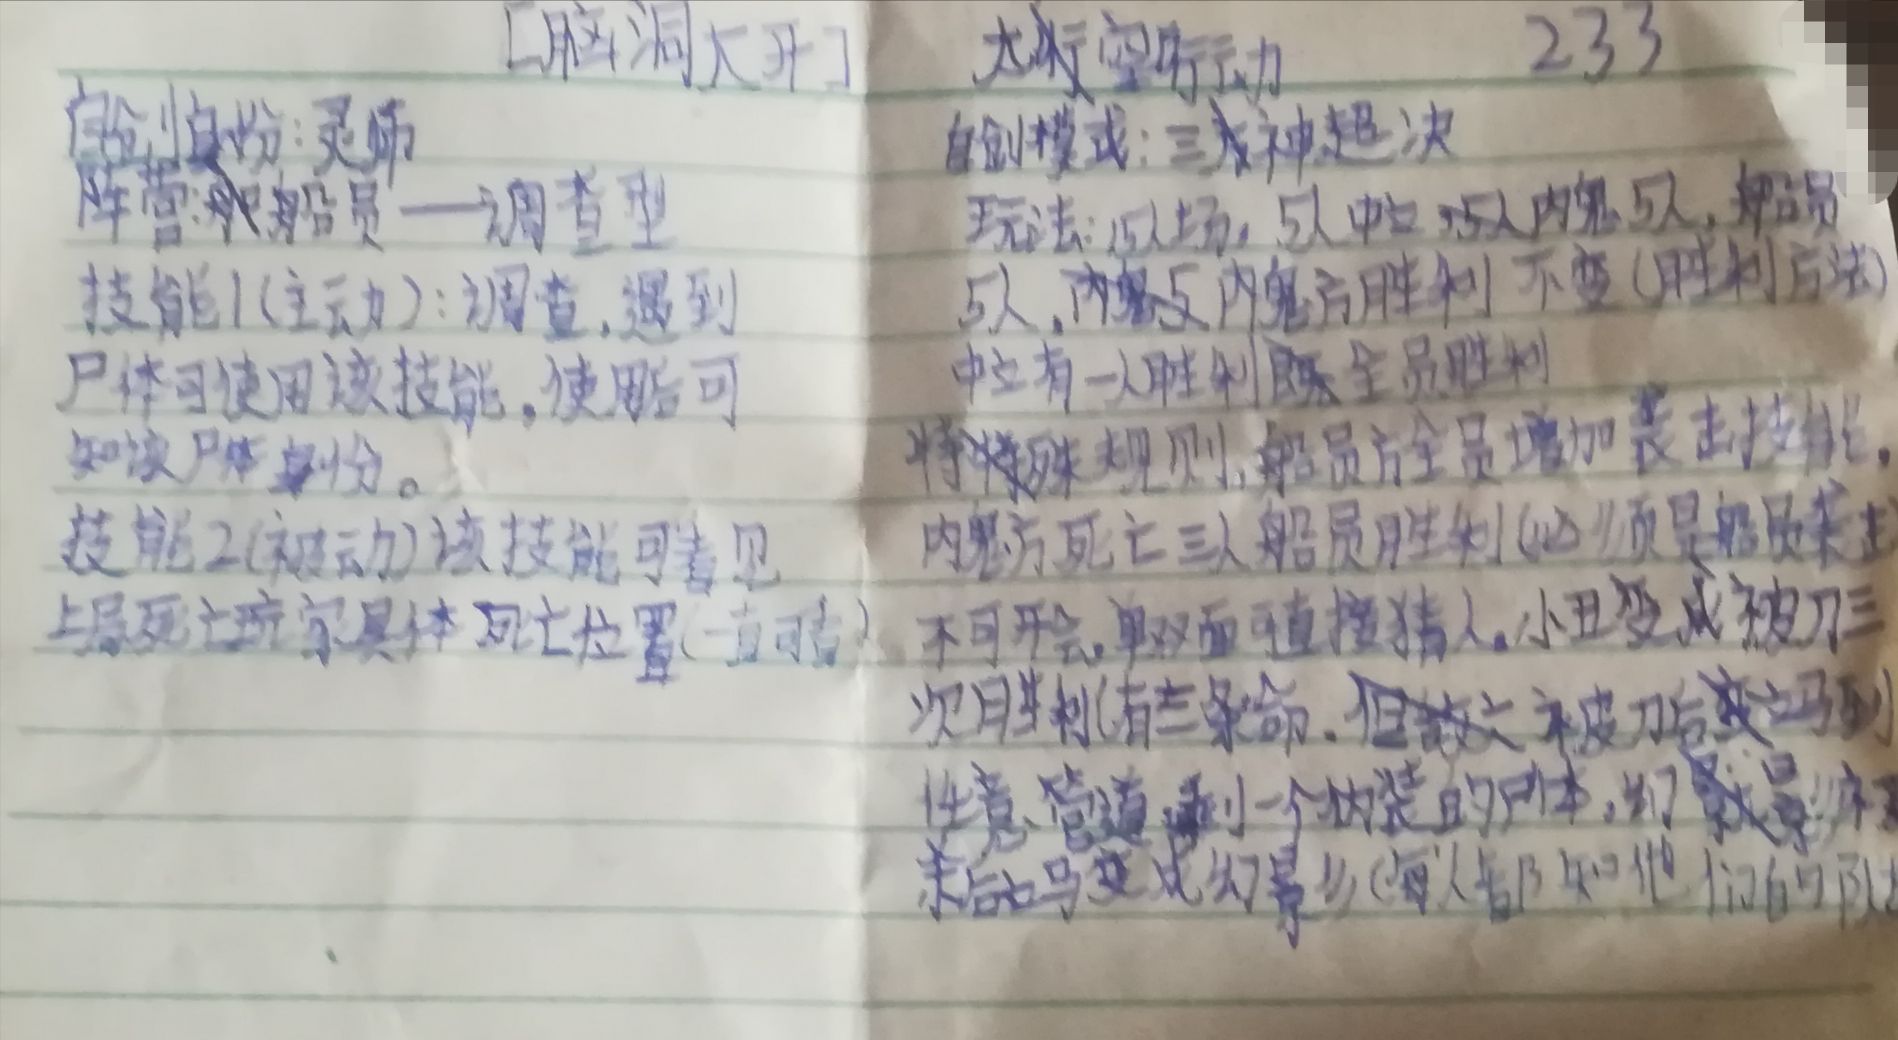 [脑洞大开] 太空行动 233
自创身份:灵师
阵营:船员——调查型
技能1(主动):调查,遇到
尸体可使用该技能,使用后可
知该尸体身份。
技能2(被动)该技能可看见
上局死亡玩家具体死亡位置(一直可看)
自创模式:三 神超决
玩法:15人场,5人中立,5人内鬼5人,船员
5人,内鬼 内鬼方胜利不变(胜利方法)
中立有一人胜利既全员胜利
特殊规则,船员方全员增加袭击技能,
内鬼方死亡三人船员胜利(必须是船员袭击
不可开会,单双面可直接猜人,小丑变成被刀三
次胜利(有三条命,但 被刀后 立马到
任意管道,到一个伪装的尸体,幻
袭后立马变成幻象 (每人都知他们的队